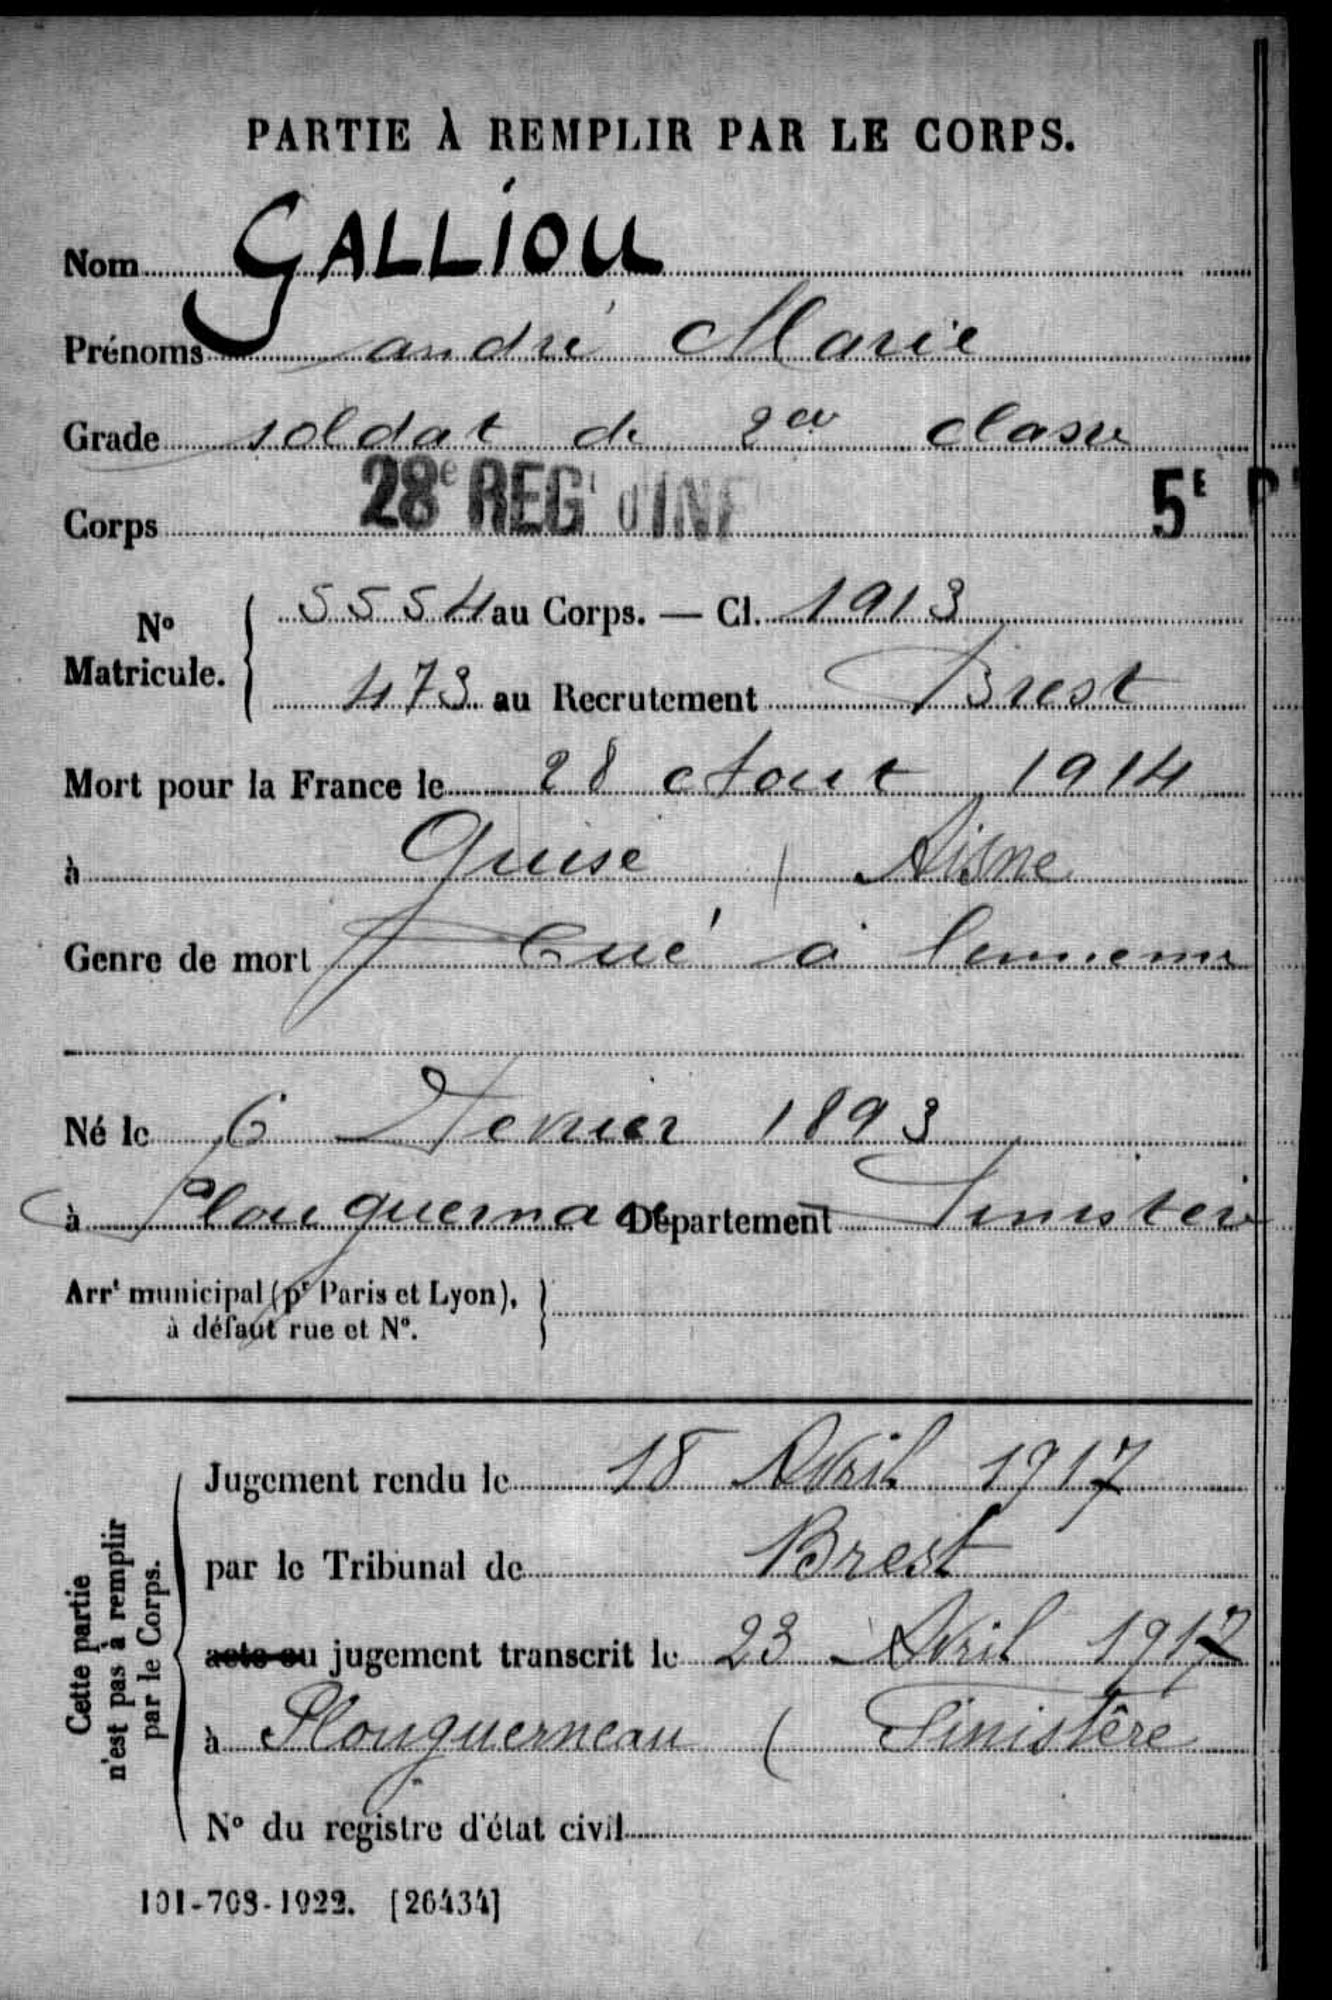 PARTIE À REMPLIR PAR LE CORPS.
Nom GALLIOU
Prénoms andré Marie
Grade soldat de 2e classe
Corps 28e REGt d'INF 5E
No Matricule. 5554 au Corps. — Cl. 1913
473 au Recrutement Brest
Mort pour la France le 28 Aout 1914
à Guise ( Aisne
Genre de mort Tué à lennemi
Né le 6 1893
à Département Finistere
Arrt municipal (pr Paris et Lyon),
à défaut rue et No.
Cette partie
n'est pas à remplir
par le Corps.
Jugement rendu le 18 Avril 1917
par le Tribunal de Brest
acte ou jugement transcrit le 23 Avril 1917
à Plouguerneau ( Finistère
No du registre d'état civil
101-708-1922. [26434]